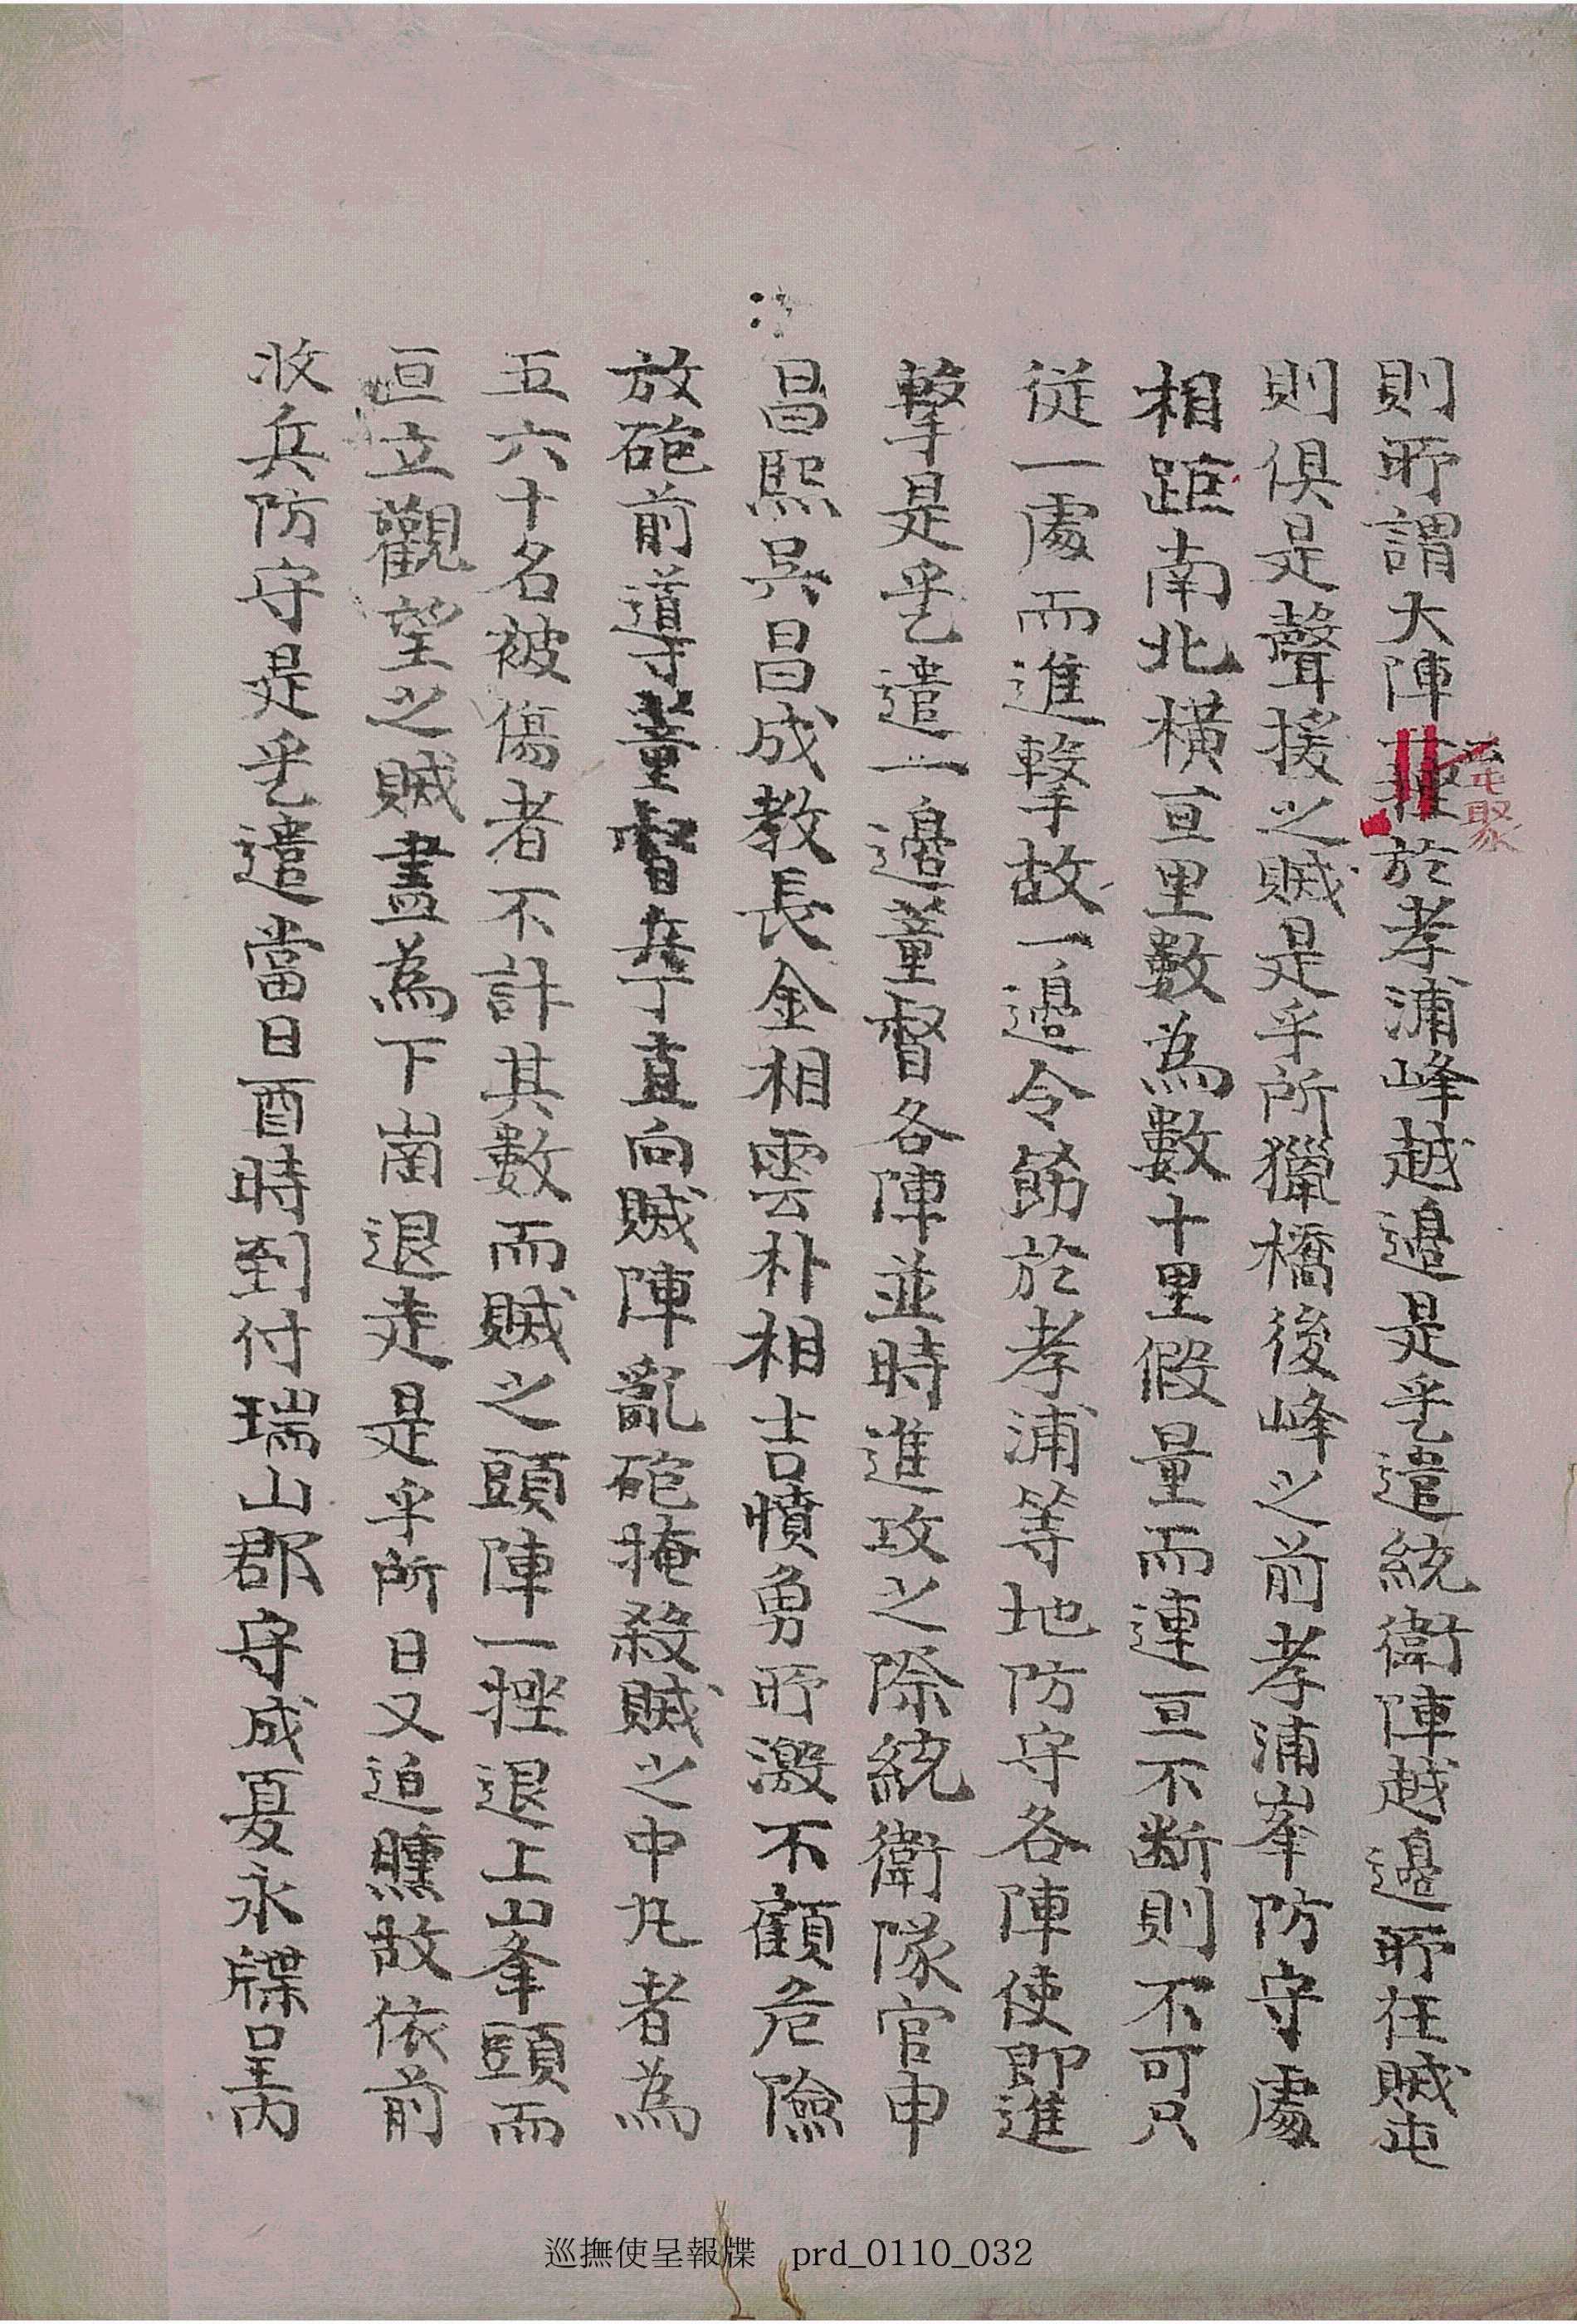 則所謂大陣屯聚於孝浦峰越邊是乎遣統衛陣越邊所在賊屯
則俱是聲援之賊是乎所獵橋後峰之前孝浦峯防守處
相距南北橫亘里數為數十里假量而連亘不斷則不可只
從一處而進擊故一邊令飭於孝浦等地防守各陣使卽進
擊是乎遣一邊董督各陣並時進攻之際統衛隊官申
昌熙吳昌成敎長金相雲朴相吉憤勇所激不顧危險
放砲前導董督兵丁直向賊陣亂砲掩殺賊之中丸者為
五六十名被傷者不計其數而賊之頭陣一挫退上山峯頭而
亘立觀望之賊盡為下崗退走是乎所日又迫曛故依前
收兵防守是乎遣當日酉時到付瑞山郡守成夏永牒呈內
巡撫使呈報牒 prd_0110_032